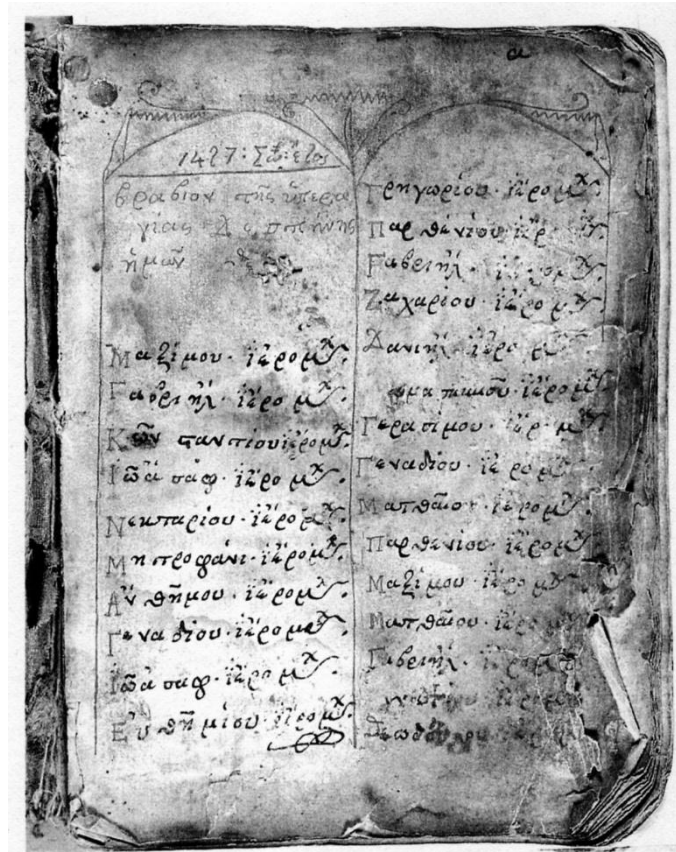 α
1427· Σω· ἔτος
βραβίον τῆς ὑπερα
γίας Δεσποτίνης
ἡμῶν
Μαξίμου· ἱερομχ.
Γαβριὴλ· ἱερομχ.
Κων σταντίου ἱερομχ.
Ἰωάσαφ· ἱερομχ.
Νεκταρίου· ἱερομχ.
Μητροφάνι· ἱερομχ.
Ἀνθήμου· ἱερομχ.
Γεναδίου· ἱερομχ.
Ἰωάσαφ· ἱερομχ.
Εὐθημίου· ἱερομχ.
Γρηγωρίου· ἱερομχ.
Παρθενίου ἱερομχ.
Γαβριήλ· ἱερομχ.
Ζαχαρίου· ἱερομχ.
Δανιήλ· ἱερομχ.
ἱερομχ.
Γερασίμου· ἱερομχ.
Γεναδίου· ἱερομχ.
Ματθαίου· ἱερομχ.
Παρθενίου· ἱερομχ.
Μαξίμου· ἱερομχ.
Ματθαίου· ἱερομχ.
Γαβριήλ· ἱερομχ.